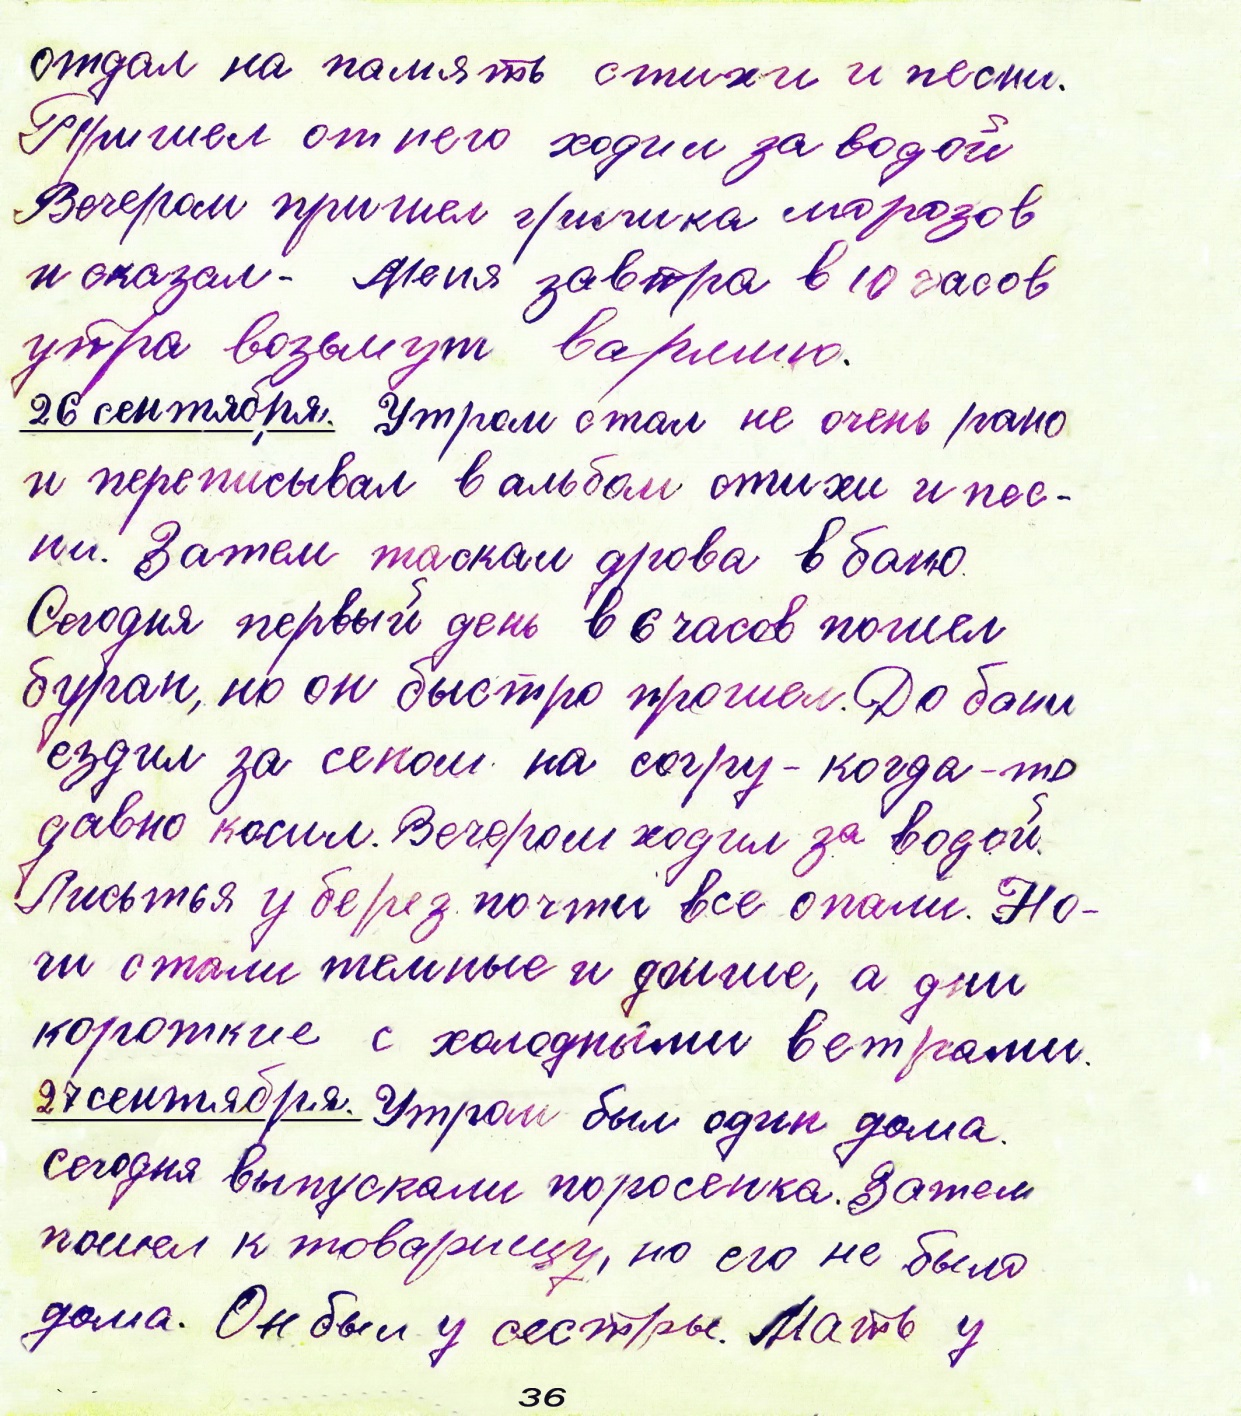 отдал на память стихи и песни.
Пришел от него ходил за водой
Вечером пришел гришка морозов
и сказал- Меня завтра в 10 часов
утра возьмут в армию.
26 сентября. Утром стал не очень рано
и переписывал в альбом стихи и пес-
ни. Затем таскал дрова в баню.
Сегодня первый день в 6 часов пошел
буран, но он быстро прошел. До бани
ездил за сеном на согру - когда-то
давно косил. Вечером ходил за водой.
Лисьтья у берез почти все опали. Но-
чи стали темные и длинные, а дни
короткие с холодными ветрами.
27 сентября. Утром был один дома.
Сегодня выпускали поросенка. Затем
пошел к товарищу, но его не было
дома. Он был у сестры. Мать у
36